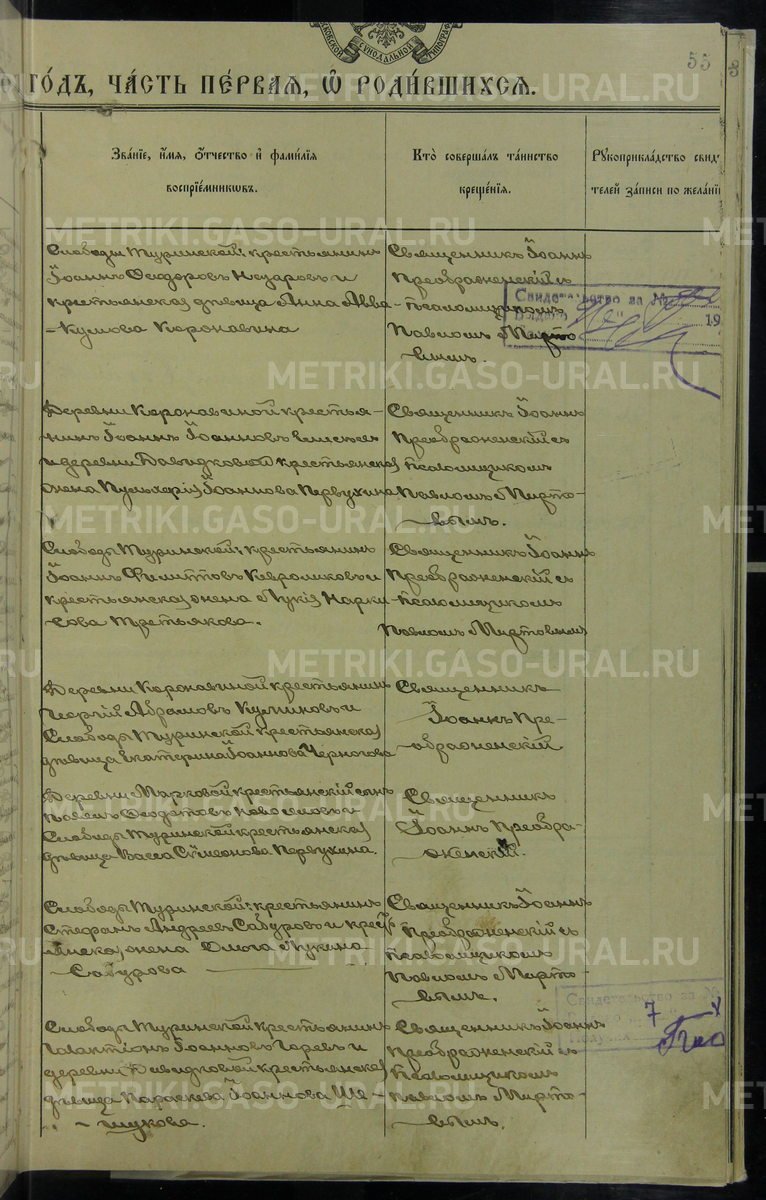 СѴНОДАЛЬНОЙ
55
ГО́ДЪ, ЧА́СТЬ ПЕ́РВАѦ, Ѽ РОДИ́ВШИХСѦ.
Зва́нїе, и҆́мѧ, ѻ҆́тчество и҆ фами́лїѧ
воспрїе́мникѡвъ.
Кто̀ соверша́лъ та́инство
креще́нїѧ.
Рꙋкоприкла́дство свид
телей за́писи по жела́нїю
Слободы Туринской: крестьянинъ
Іоаннъ Ѳеодоровъ Назаровъ и
крестьянская дѣвица Анна Авва-
-кумова Коровкина
Священникъ Іоаннъ
Преображенскій съ
псаломщикомъ
Павломъ Мирто
вымъ.
Свидетельство за №
19
Деревни Коровкиной крестья-
нинъ Іоаннъ Іоанновъ
и деревни Давыдковой крестьянская
жена Пульхерія Іоаннова Первухина
Священникъ Іоаннъ
Преображенскій съ
псаломщикомъ
Павломъ Мирто-
вымъ.
Слободы Туринской: крестьянинъ
Іоаннъ Филиповъ и
крестьянская жена Лукія Нарки-
сова Третьякова.
Священникъ Іоаннъ
Преображенскій съ
псаломщикомъ
Павломъ Миртовымъ
Деревни Коровкиной крестьянинъ
Георгій Абрамовъ Куликовъ и
Слободы Туринской крестьянская
дѣвица Екатерина Іоаннова Чернова
Священникъ
Іоаннъ Пре-
ображенскій
Деревни Марковой крестьянскій сынъ
Павелъ Ѳеодотовъ Новоселовъ и
Слободы Туринской крестьянская
дѣвица Васса Сѵмеонова Первухина.
Священникъ
Іоаннъ Преобра-
женскій.
Слободы Туринской: крестьянинъ
Стефанъ Андреевъ Сабуровъ и крестьянская
жена Ольга Лукина
Сабурова
Священникъ Іоаннъ
Преображенскій съ
псаломщикомъ
Павломъ Мирто-
вымъ.
Свидетельство за №
7
Слободы Туринской крестьянинъ
Галактіонъ Іоанновъ и
деревни Давыдковой крестьянская
дѣвица Параскева Іоаннова Ше-
-шукова.
Священникъ Іоаннъ
Преображенскій съ
псаломщикомъ
Павломъ Мирто-
вымъ.
METRIKI.GASO-URAL.RU